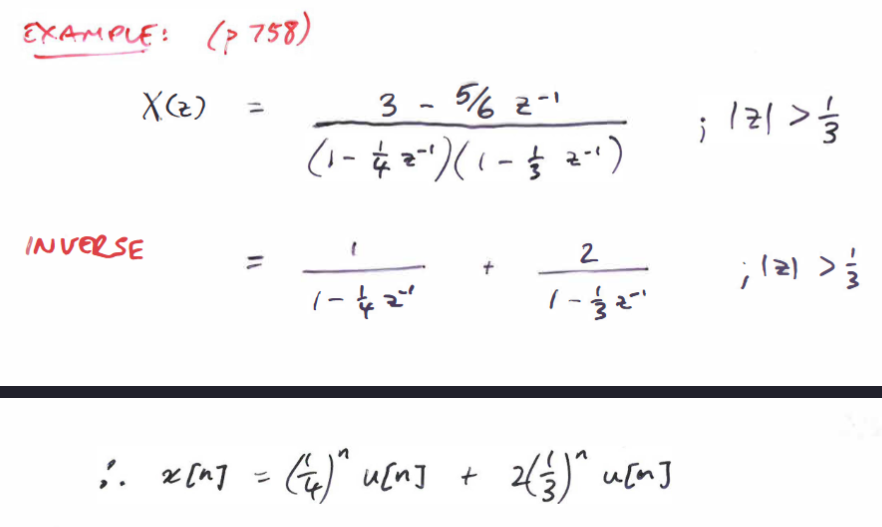 EXAMPLE: (p 758)
X(z) = (3 - 5/6 z⁻¹) / ((1 - 1/4 z⁻¹)(1 - 1/3 z⁻¹)) ; |z| > 1/3
INVERSE = 1 / (1 - 1/4 z⁻¹) + 2 / (1 - 1/3 z⁻¹) ; |z| > 1/3
∴ x[n] = (1/4)ⁿ u[n] + 2(1/3)ⁿ u[n]